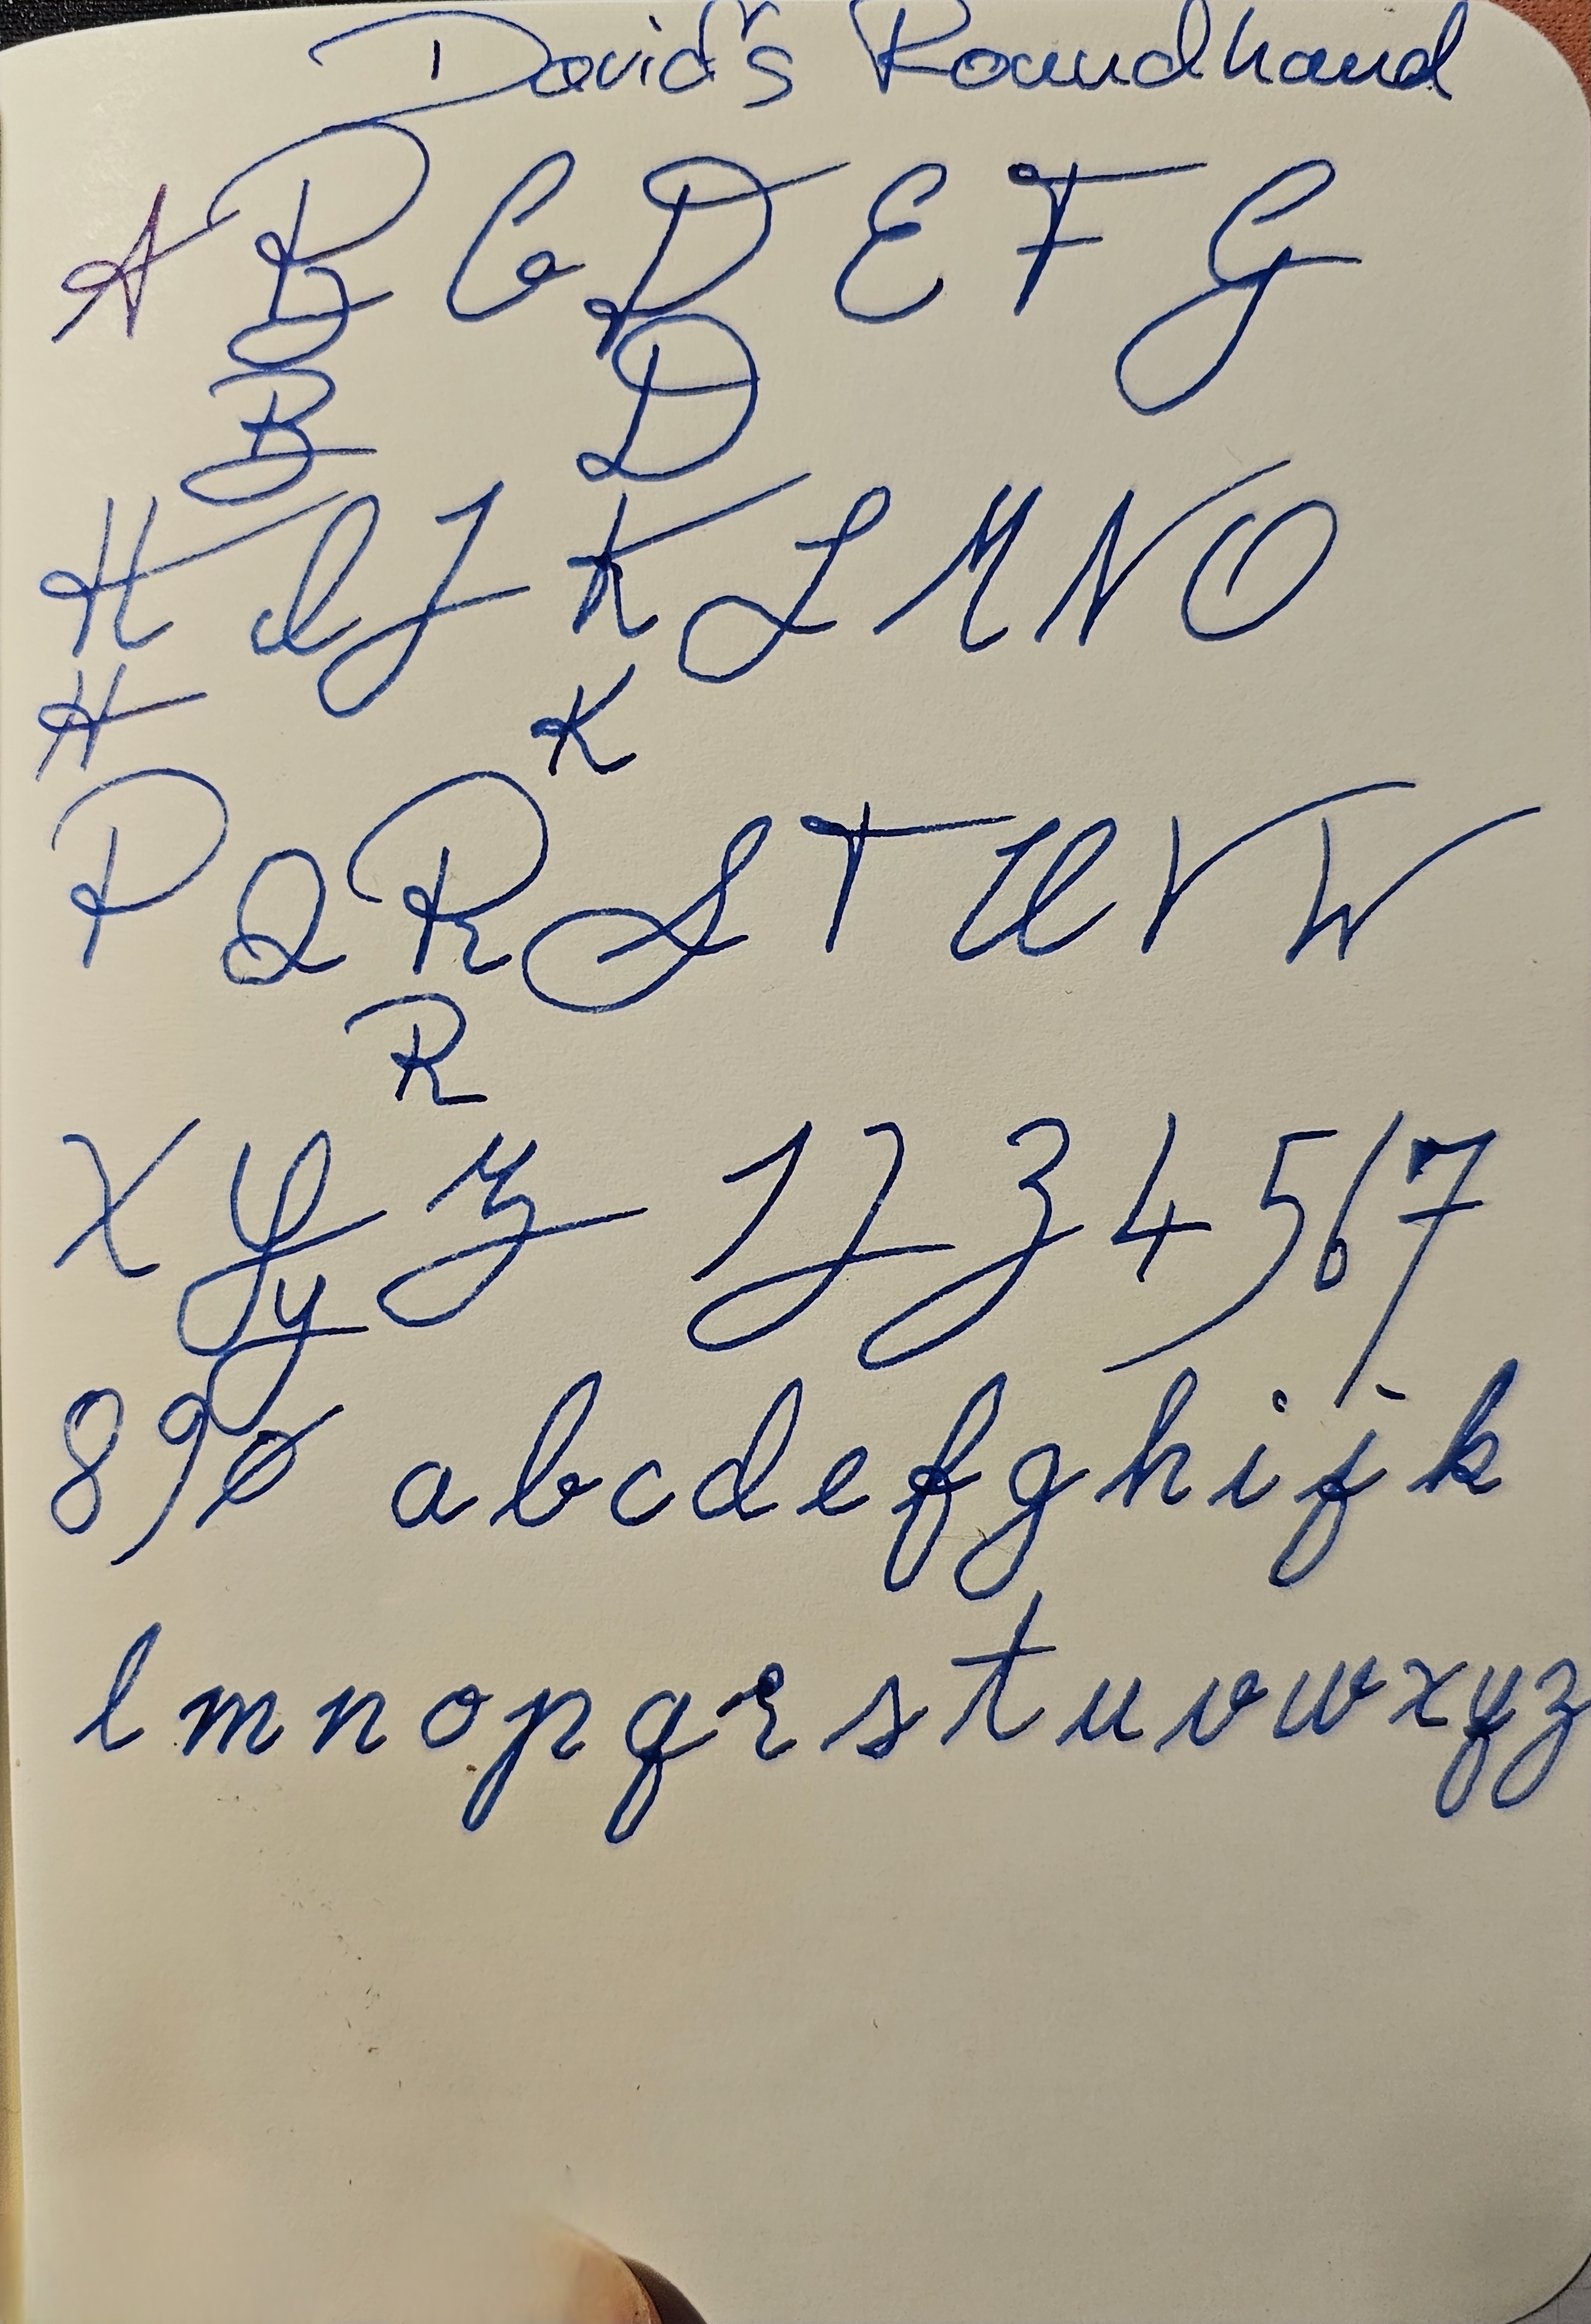 David's Roundhand
A B C D E F G
B D
H I J K L M N O
H K
P Q R S T U V W
R
X Y Z 1 2 3 4 5 6 7
y
8 9 0 a b c d e f g h i j k
l m n o p q r s t u v w x y z